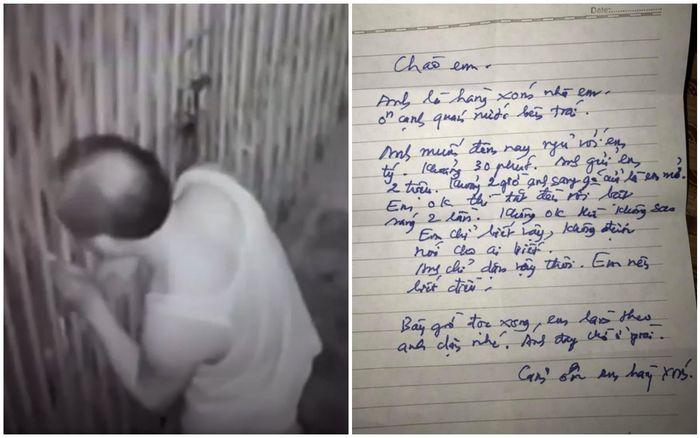 Date:
Chào em.
Anh là hàng xóm nhà em.
ở cạnh quán nước bên trái.
Anh muốn đêm nay ngủ với em
tý. Khoảng 30 phút. Anh gửi em
2 triệu. Khoảng 2 giờ anh sang gõ cửa là em mở.
Em ok thì tắt đèn rồi bật
sáng 2 lần. Không ok thì không sao
Em chỉ biết vậy, không được
nói cho ai biết.
Anh chỉ dặn vậy thôi. Em nên
biết điều.
Bây giờ đọc xong, em làm theo
anh dặn nhé. Anh đang
Cảm ơn em hàng xóm.